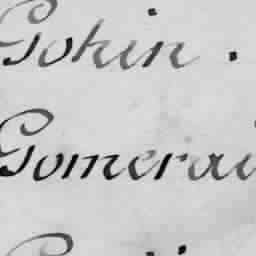 Gohin.
Gomerai